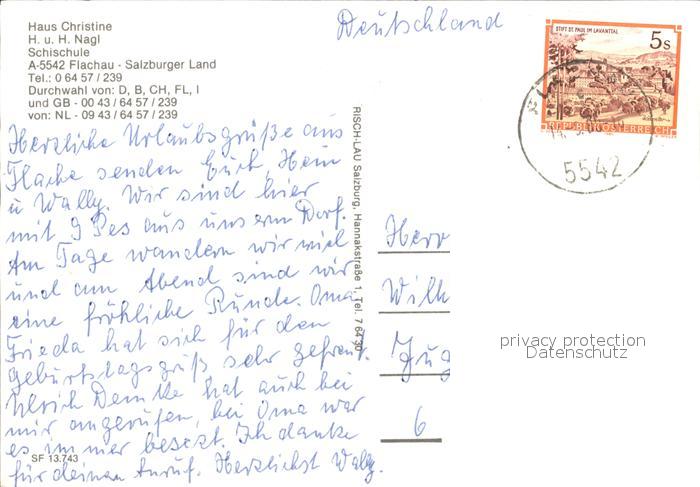 Haus Christine
H. u. H. Nagl
Schischule
A-5542 Flachau - Salzburger Land
Tel.: 0 64 57 / 239
Durchwahl von: D, B, CH, FL, I
und GB - 00 43 / 64 57 / 239
von: NL - 09 43 / 64 57 / 239
Herzliche Urlaubsgrüße aus
Flacha senden Euch, Hein
u Wally. Wir sind hier
mit 9 Pes aus unserm Dorf.
Am Tage wandern wir viel
und am Abend sind wir
eine fröhliche Runde. Oma
Frieda hat sich für den
Geburtstagsgruß sehr gefreut.
Ulrich Demke hat auch bei
mir angerufen, bei Oma war
es immer besezt. Ich danke
für deinen Anruf. Herzlichst Wally.
SF 13.743
RISCH-LAU Salzburg, Hannakstraße 1, Tel. 7 64 30
Deutschland
STIFT ST. PAUL IM LAVANTTAL
5s
REPUBLIK ÖSTERREICH
5542
Herr
Wilh
6
privacy protection
Datenschutz